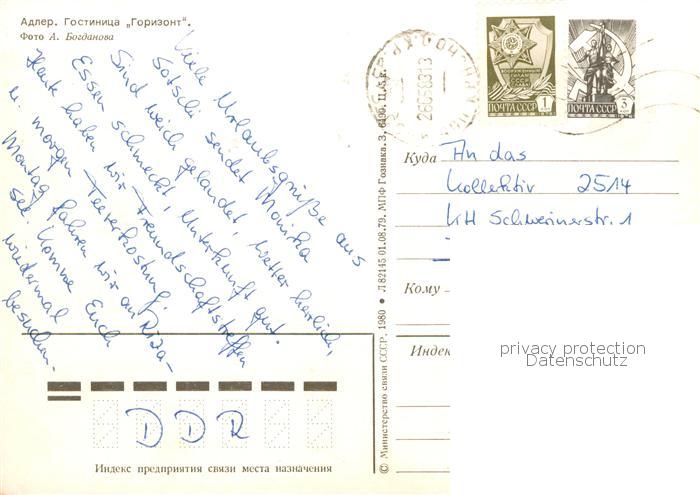 Адлер. Гостиница „Горизонт".
Фото А. Богданова
Viele Urlaubsgrüße aus
Sotschi sendet Monika
Sind weich gelandet, Wetter herrlich,
Essen schmeckt, Unterkunft gut.
Heute haben wir Freundschaftstreffen
u. morgen Teeverkostung.
Montag fahren wir an Riza-
See. Komme Euch
wiedermal
besuchen.
ПОЧТА СССР 1
ПОЧТА СССР 3
Куда An das
Kollektiv 2514
KH Schwerinerstr. 1
Кому
Индекс
privacy protection
Datenschutz
DDR
Индекс предприятия связи места назначения
© Министерство связи СССР, 1980 ● Л 82145 01.08.79. МПФ Гознака. З. 6490. Ц. 5 к.